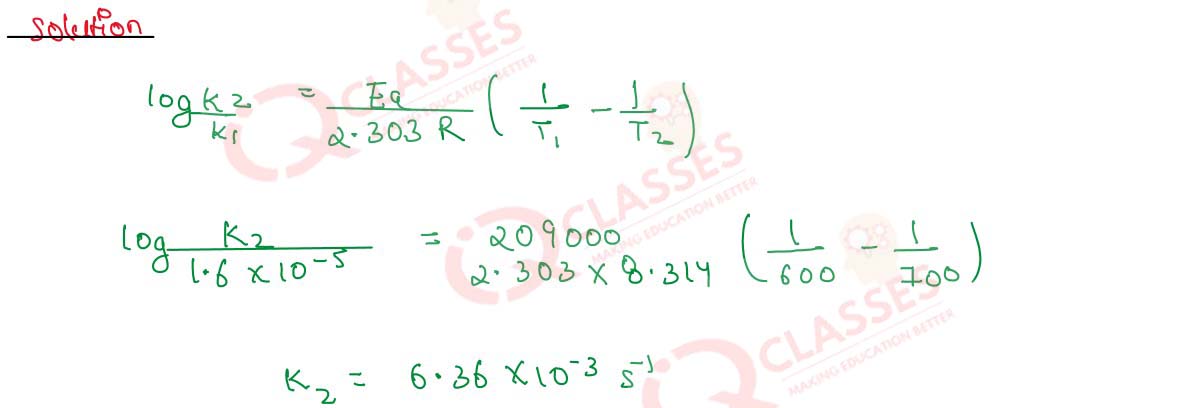 Solution
log K2/K1 = Ea/2.303 R (1/T1 - 1/T2)
log K2/1.6 × 10^-5 = 209000/2.303 × 8.314 (1/600 - 1/700)
K2 = 6.36 × 10^-3 s^-1
CLASSES
MAKING EDUCATION BETTER
CLASSES
MAKING EDUCATION BETTER
CLASSES
MAKING EDUCATION BETTER